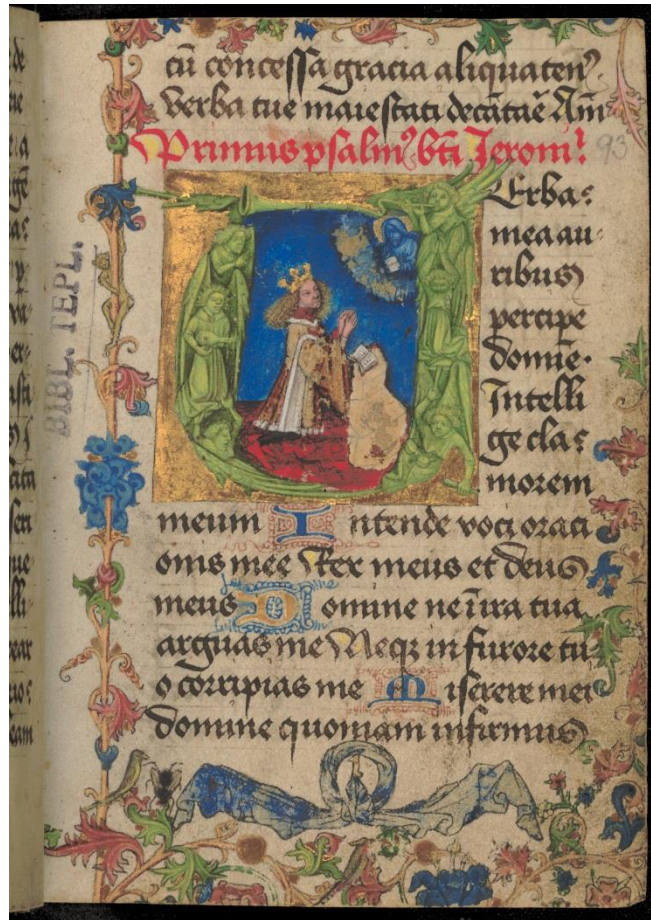 cū concessa gracia aliquaten⁹
verba tue maiestati decātāe Am̄
Primus psalm⁹ bti Jeroni⁹
93
Verba
mea au
ribus
percipe
domine
Intelli
ge cla
morem
meum Intende voci oraci
onis mee Rex meus et deus
meus Domine ne ī ira tua
arguas me Neqꝫ in furore tu
o corripias me Miserere mei
domine quoniam infirmus
BIBL. TEPL.